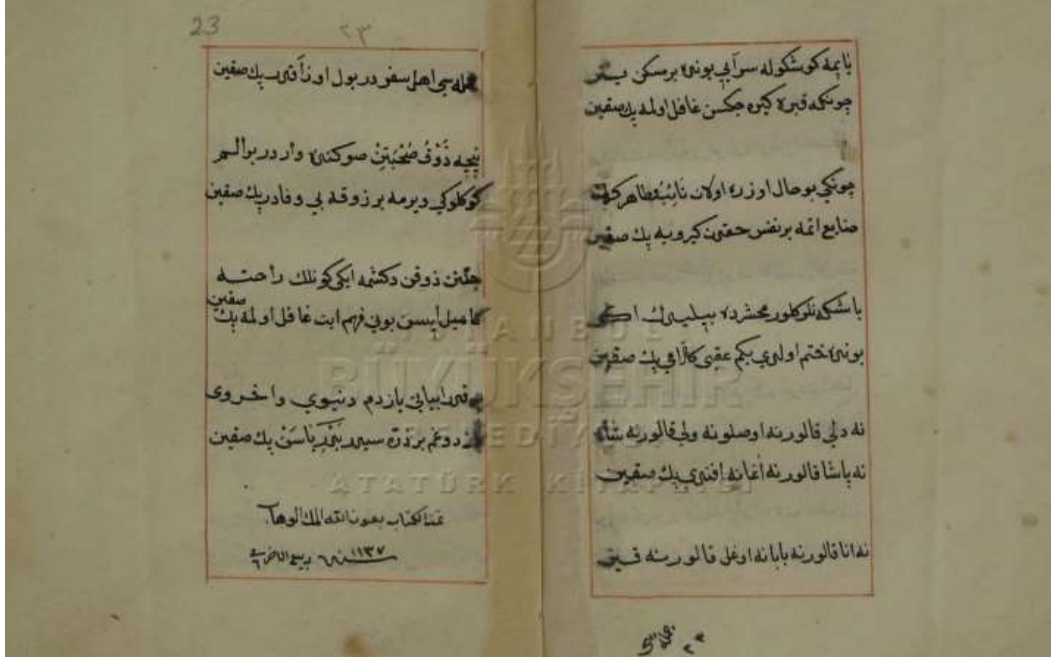 یاپمه کوشکله سرایی بونده بر مسکن یتر
چونکه قبره کیره جکسن غافل اولمه پك صقین
چونکی بو حال اوزره اولان
ضایع اتمه بر نفس پك صقین
باشکه نلر کلور محشرده بیلیدك
بونده ختم اولدی پك صقین
نه دلی قالور نه اوصلو نه ولی قالور نه شاه
نه پاشا قالور نه اغا نه افندی پك صقین
نه انا قالور نه بابا نه اوغل قالور نه قیز
23
٢٣
جمله سی اهل سفر در یول اوزاقدر پك صقین
نیچه ذوق صحبتن صوکنده واردر بو الم
کوکلوکی ویرمه بر ذوقه بی وفادر پك صقین
جنّتن ذوقن دکشمه ایکی کونلك راحته
کامیل ایسن بونی فهم ایت غافل اولمه پك صقین
ابیاتی یازدم دنیوی و اخروی
بر ذره پك صقین
تمت الکتاب بعون الله الملك الوهاب
سنه ١١٣٧ ربیع الاخر
٢٣
ISTANBUL
BÜYÜKŞEHİR
BELEDİYESİ
ATATÜRK KİTAPLIĞI